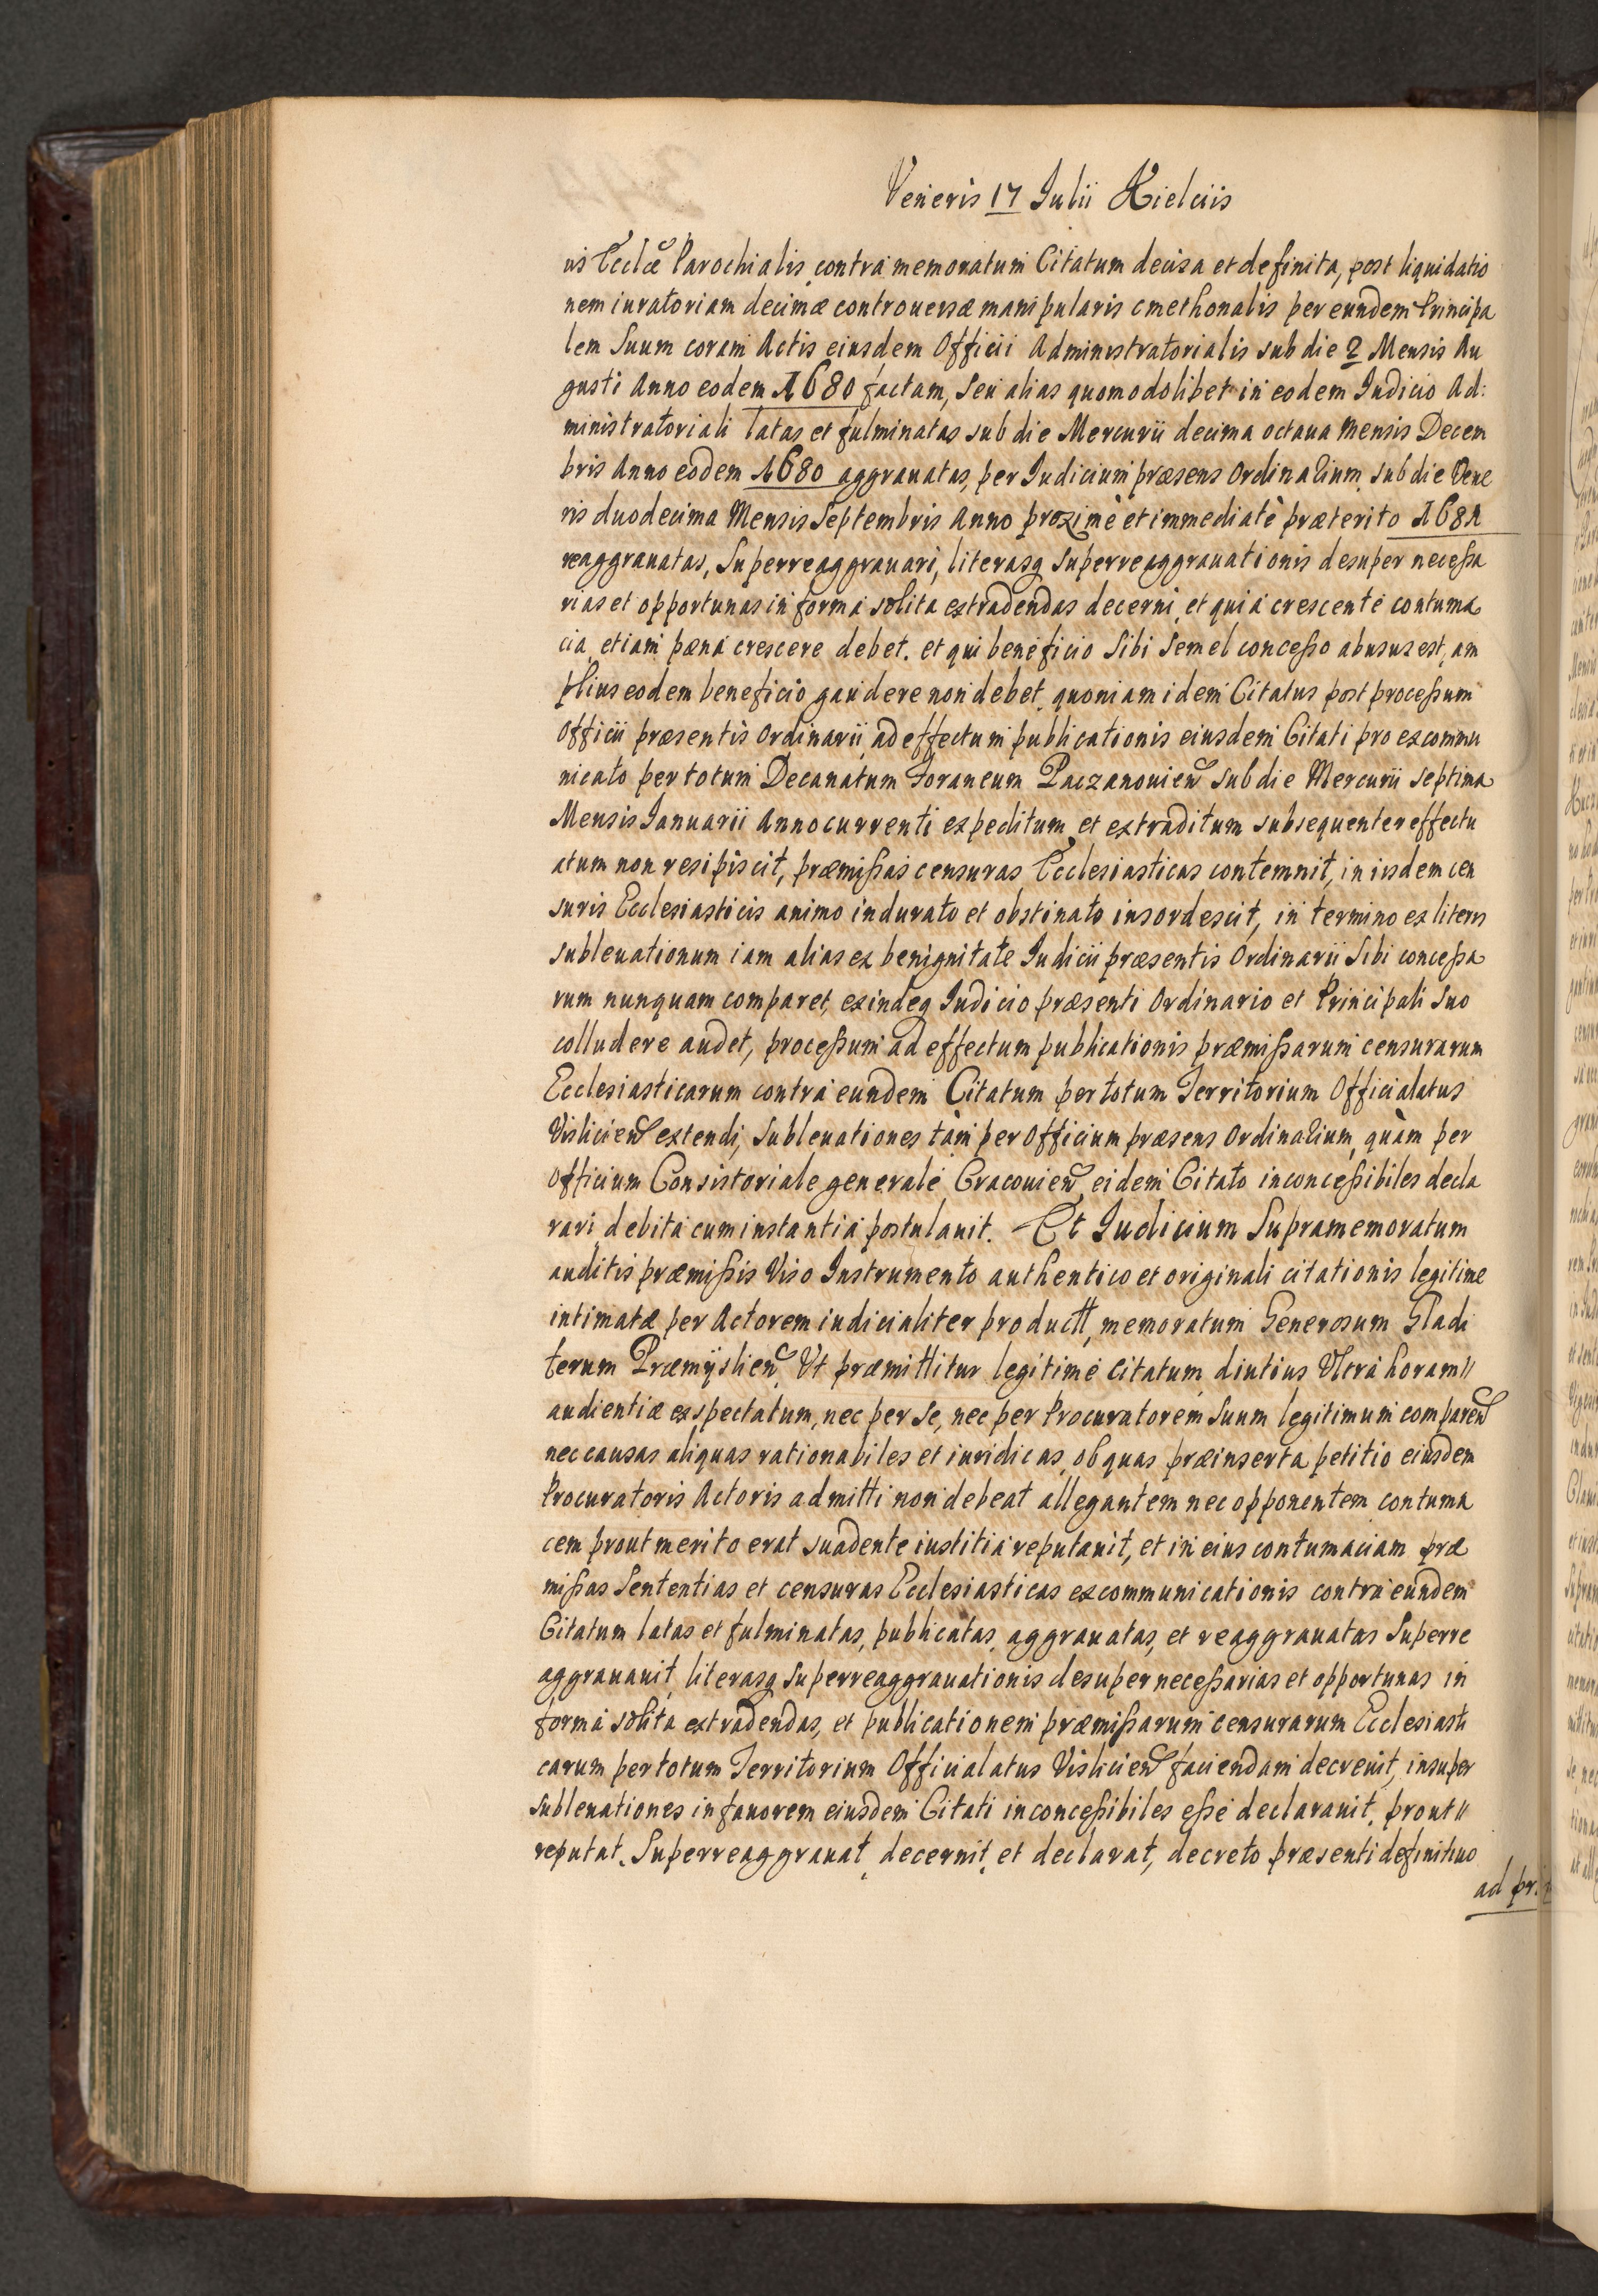 Veneris 17 Iulii Kielciis
us Ecclæ Parochialis contra memoratum Citatum decisa et definita, post liquidatio
nem iuratoriam decimæ controuersæ manipularis cmethonalis per eundem Principa
lem Suum coram Actis eiusdem Officii Administratorialis sub die 2 Mensis Au
gusti Anno eodem 1680 factam, seu alias quomodolibet in eodem Iudicio Ad:
ministratoriali latas et fulminatas sub die Mercurii decima octaua Mensis Decem
bris Anno eodem 1680 aggrauatas, per Iudicium præsens Ordinarium sub die Vene
ris duodecima Mensis Septembris Anno proximè et immediatè præterito 1681
reaggrauatas, Superreaggrauari, literasq Superreaggrauationis desuper necessa
rias et opportunas in forma solita extradendas decerni, et quia crescente contuma
cia etiam pæna crescere debet, et qui beneficio Sibi Semel concesso abusus est, am
plius eodem beneficio gaudere non debet, quoniam idem Citatus post processum
Officii præsentis Ordinarii, ad effectum publicationis eiusdem Citati pro excommu
nicato per totum Decanatum Foraneum Paczanouien sub die Mercurii Septima
Mensis Ianuarii Anno currenti expeditum et extraditum subsequenter effectu
atum non resipiscit, præmissas censuras Ecclesiasticas contemnit, in iisdem cen
suris Ecclesiasticis animo indurato et obstinato insordescit, in termino ex literis
subleuationum iam alias ex benignitate Iudicii præsentis Ordinarii Sibi concessa
rum nunquam comparet, exindeq Iudicio præsenti Ordinario et Principali Suo
colludere audet, processum ad effectum publicationis præmissarum censurarum
Ecclesiasticarum contra eundem Citatum per totum Territorium Officialatus
Vislicien extendi, Subleuationes tàm per Officium præsens Ordinarium, quàm per
Officium Consistoriale generale Cracouien eidem Citato inconcessibiles decla
rari debita cum instantia postulauit. Et Iudicium Supramemoratum
auditis præmissis Viso Instrumento authentico et originali citationis legitime
intimatæ per Actorem iudicialiter product, memoratum Generosum Gladi
ferum Præmyslien, Vt præmittitur legitimè citatum diutius Vltra horam //
audientiæ exspectatum, nec per Se, nec per Procuratorem Suum legitimum comparen
nec causas aliquas rationabiles et iuridicas, ob quas præinserta petitio eiusdem
Procuratoris Actoris admitti non debeat allegantem nec opponentem contuma
cem prout merito erat suadente iustitia reputauit, et in eius contumaciam præ
missas Sententias et censuras Ecclesiasticas excommunicationis contra eundem
Citatum latas et fulminatas, publicatas, aggrauatas, et reaggrauatas Superre
aggrauauit, literasq Superreaggrauationis desuper necessarias et opportunas in
forma solita extradendas, et publicationem præmissarum censurarum Ecclesiasti
carum per totum Territorium Officialatus Vislicien faciendam decreuit, insuper
Subleuationes in fauorem eiusdem Citati inconcessibiles esse declarauit, prout //
reputat, Superreaggrauat, decernit, et declarat, decreto præsenti definitiuo
ad